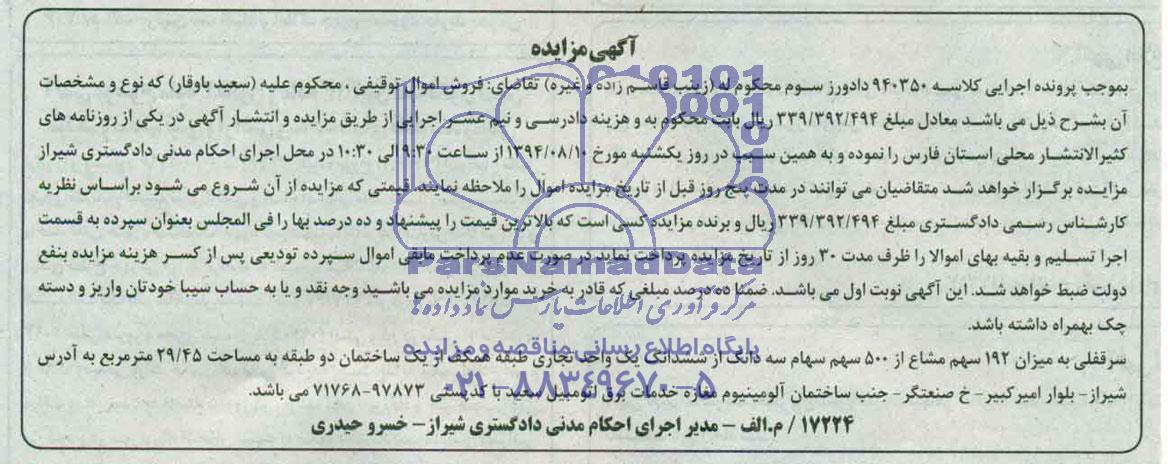 آگهی مزایده
بموجب پرونده اجرایی کلاسه ۹۴۰۳۵۰ دادورز سوم محکوم له (زینب قاسم زاده و غیره) تقاضای: فروش اموال توقیفی، محکوم علیه (سعید باوقار) که نوع و مشخصات
آن بشرح ذیل می باشد معادل مبلغ ۳۳۹/۳۹۲/۴۹۴ ریال بابت محکوم به و هزینه دادرسی و نیم عشر اجرایی از طریق مزایده و انتشار آگهی در یکی از روزنامه های
کثیرالانتشار محلی استان فارس را نموده و به همین سبب در روز یکشنبه مورخ ۱۳۹۴/۰۸/۱۰ از ساعت ۹:۳۰ الی ۱۰:۳۰ در محل اجرای احکام مدنی دادگستری شیراز
مزایده برگزار خواهد شد متقاضیان می توانند در مدت پنج روز قبل از تاریخ مزایده اموال را ملاحظه نمایند. قیمتی که مزایده از آن شروع می شود براساس نظریه
کارشناس رسمی دادگستری مبلغ ۳۳۹/۳۹۲/۴۹۴ ریال و برنده مزایده کسی است که بالاترین قیمت را پیشنهاد و ده درصد بها را فی المجلس بعنوان سپرده به قسمت
اجرا تسلیم و بقیه بهای اموالا را ظرف مدت ۳۰ روز از تاریخ مزایده پرداخت نماید در صورت عدم پرداخت مابقی اموال سپرده تودیعی پس از کسر هزینه مزایده بنفع
دولت ضبط خواهد شد. این آگهی نوبت اول می باشد. ضمنا ده درصد مبلغی که قادر به خرید موارد مزایده می باشید وجه نقد و یا به حساب سیبا خودتان واریز و دسته
چک بهمراه داشته باشد.
سرقفلی به میزان ۱۹۲ سهم مشاع از ۵۰۰ سهم سهام سه دانگ از ششدانگ یک واحد تجاری طبقه همکف از یک ساختمان دو طبقه به مساحت ۲۹/۴۵ مترمربع به آدرس
شیراز- بلوار امیرکبیر- خ صنعتگر- جنب ساختمان آلومینیوم مغازه خدمات برق اتومبیل سعید با کدپستی ۹۷۸۷۳-۷۱۷۶۸ می باشد.
۱۷۲۲۴/ م.الف - مدیر اجرای احکام مدنی دادگستری شیراز- خسرو حیدری
ParsNamadData
مرکز فرآوری اطلاعات پارس نماد داده ها
پایگاه اطلاع رسانی مناقصه و مزایده
۰۲۱-۸۸۳۴۹۶۷۰-۵